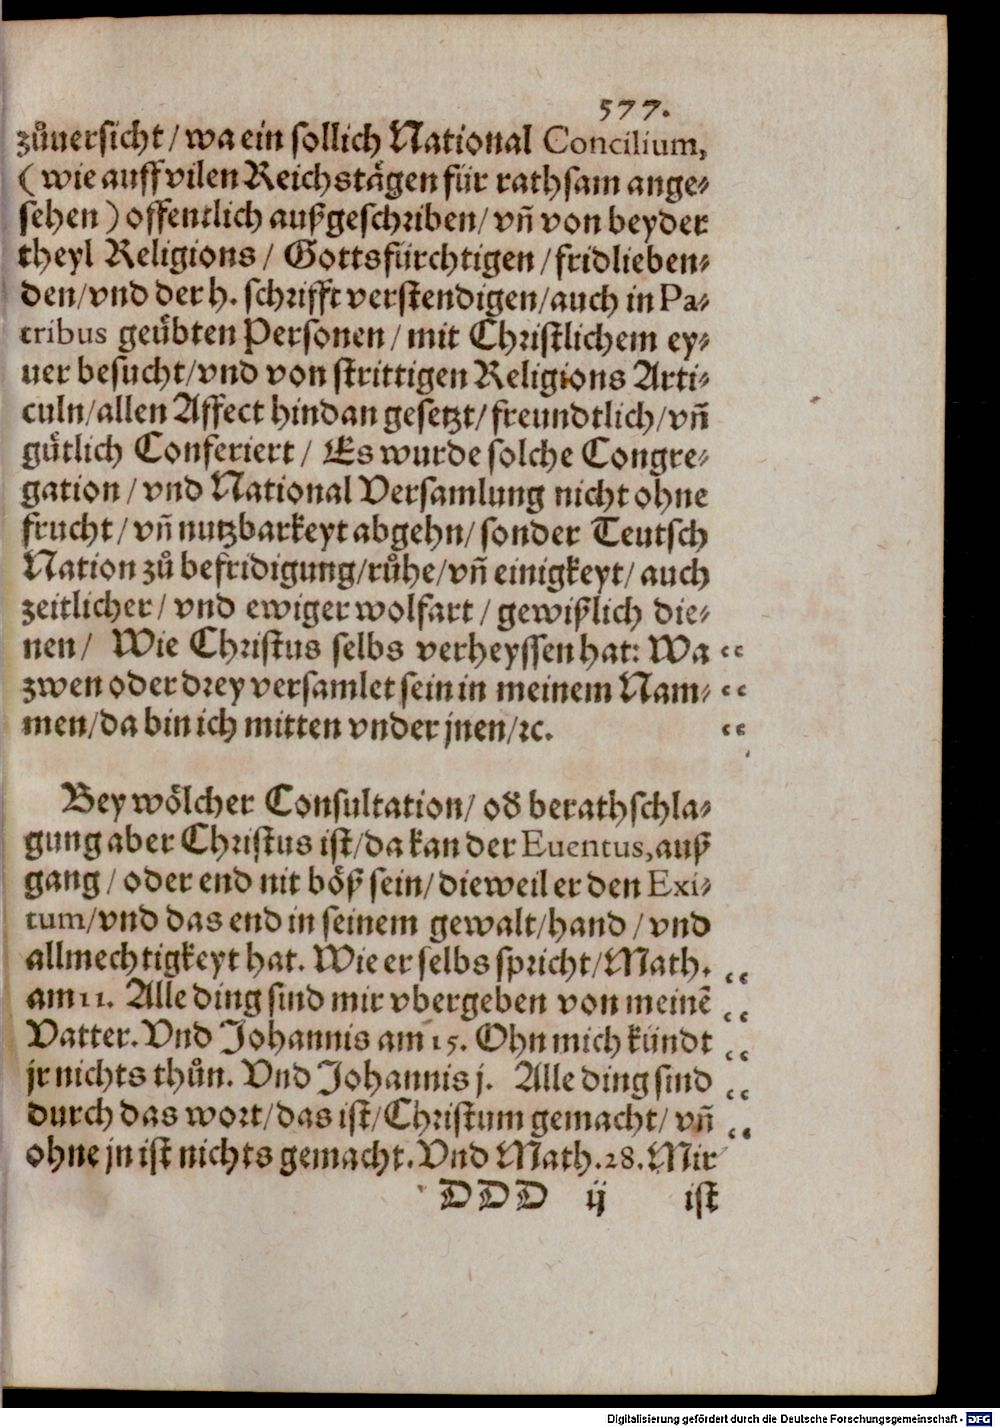 577.
zůuersicht / wa ein sollich National Concilium,
( wie auff vilen Reichstägen für rathsam ange⸗
sehen ) offentlich außgeschriben / vñ von beyder
theyl Religions / Gottsfürchtigen / fridlieben⸗
den / vnd der h. schrifft verstendigen / auch in Pa⸗
tribus geübten Personen / mit Christlichem ey⸗
uer besucht / vnd von strittigen Religions Arti⸗
culn / allen Affect hindan gesetzt / freundtlich / vñ
gütlich Conferiert / Es wurde solche Congre⸗
gation / vnd National Versamlung nicht ohne
frucht / vñ nutzbarkeyt abgehn / sonder Teutsch
Nation zů befridigung / růhe / vñ einigkeyt / auch
zeitlicher / vnd ewiger wolfart / gewißlich die⸗
nen / Wie Christus selbs verheyssen hat: Wa “
zwen oder drey versamlet sein in meinem Nam⸗ “
men / da bin ich mitten vnder jnen / ꝛc. “
Bey wölcher Consultation / oď berathschla⸗
gung aber Christus ist / da kan der Euentus, auß
gang / oder end nit böß sein / dieweil er den Exi⸗
tum / vnd das end in seinem gewalt / hand / vnd
allmechtigkeyt hat. Wie er selbs spricht / Math. “
am 11. Alle ding sind mir vbergeben von meinē “
Vatter. Vnd Johannis am 15. Ohn mich kündt “
jr nichts thůn. Vnd Johannis j. Alle ding sind “
durch das wort / das ist / Christum gemacht / vñ “
ohne jn ist nichts gemacht. Vnd Math. 28. Mir
DDD ij ist
Digitalisierung gefördert durch die Deutsche Forschungsgemeinschaft - DFG